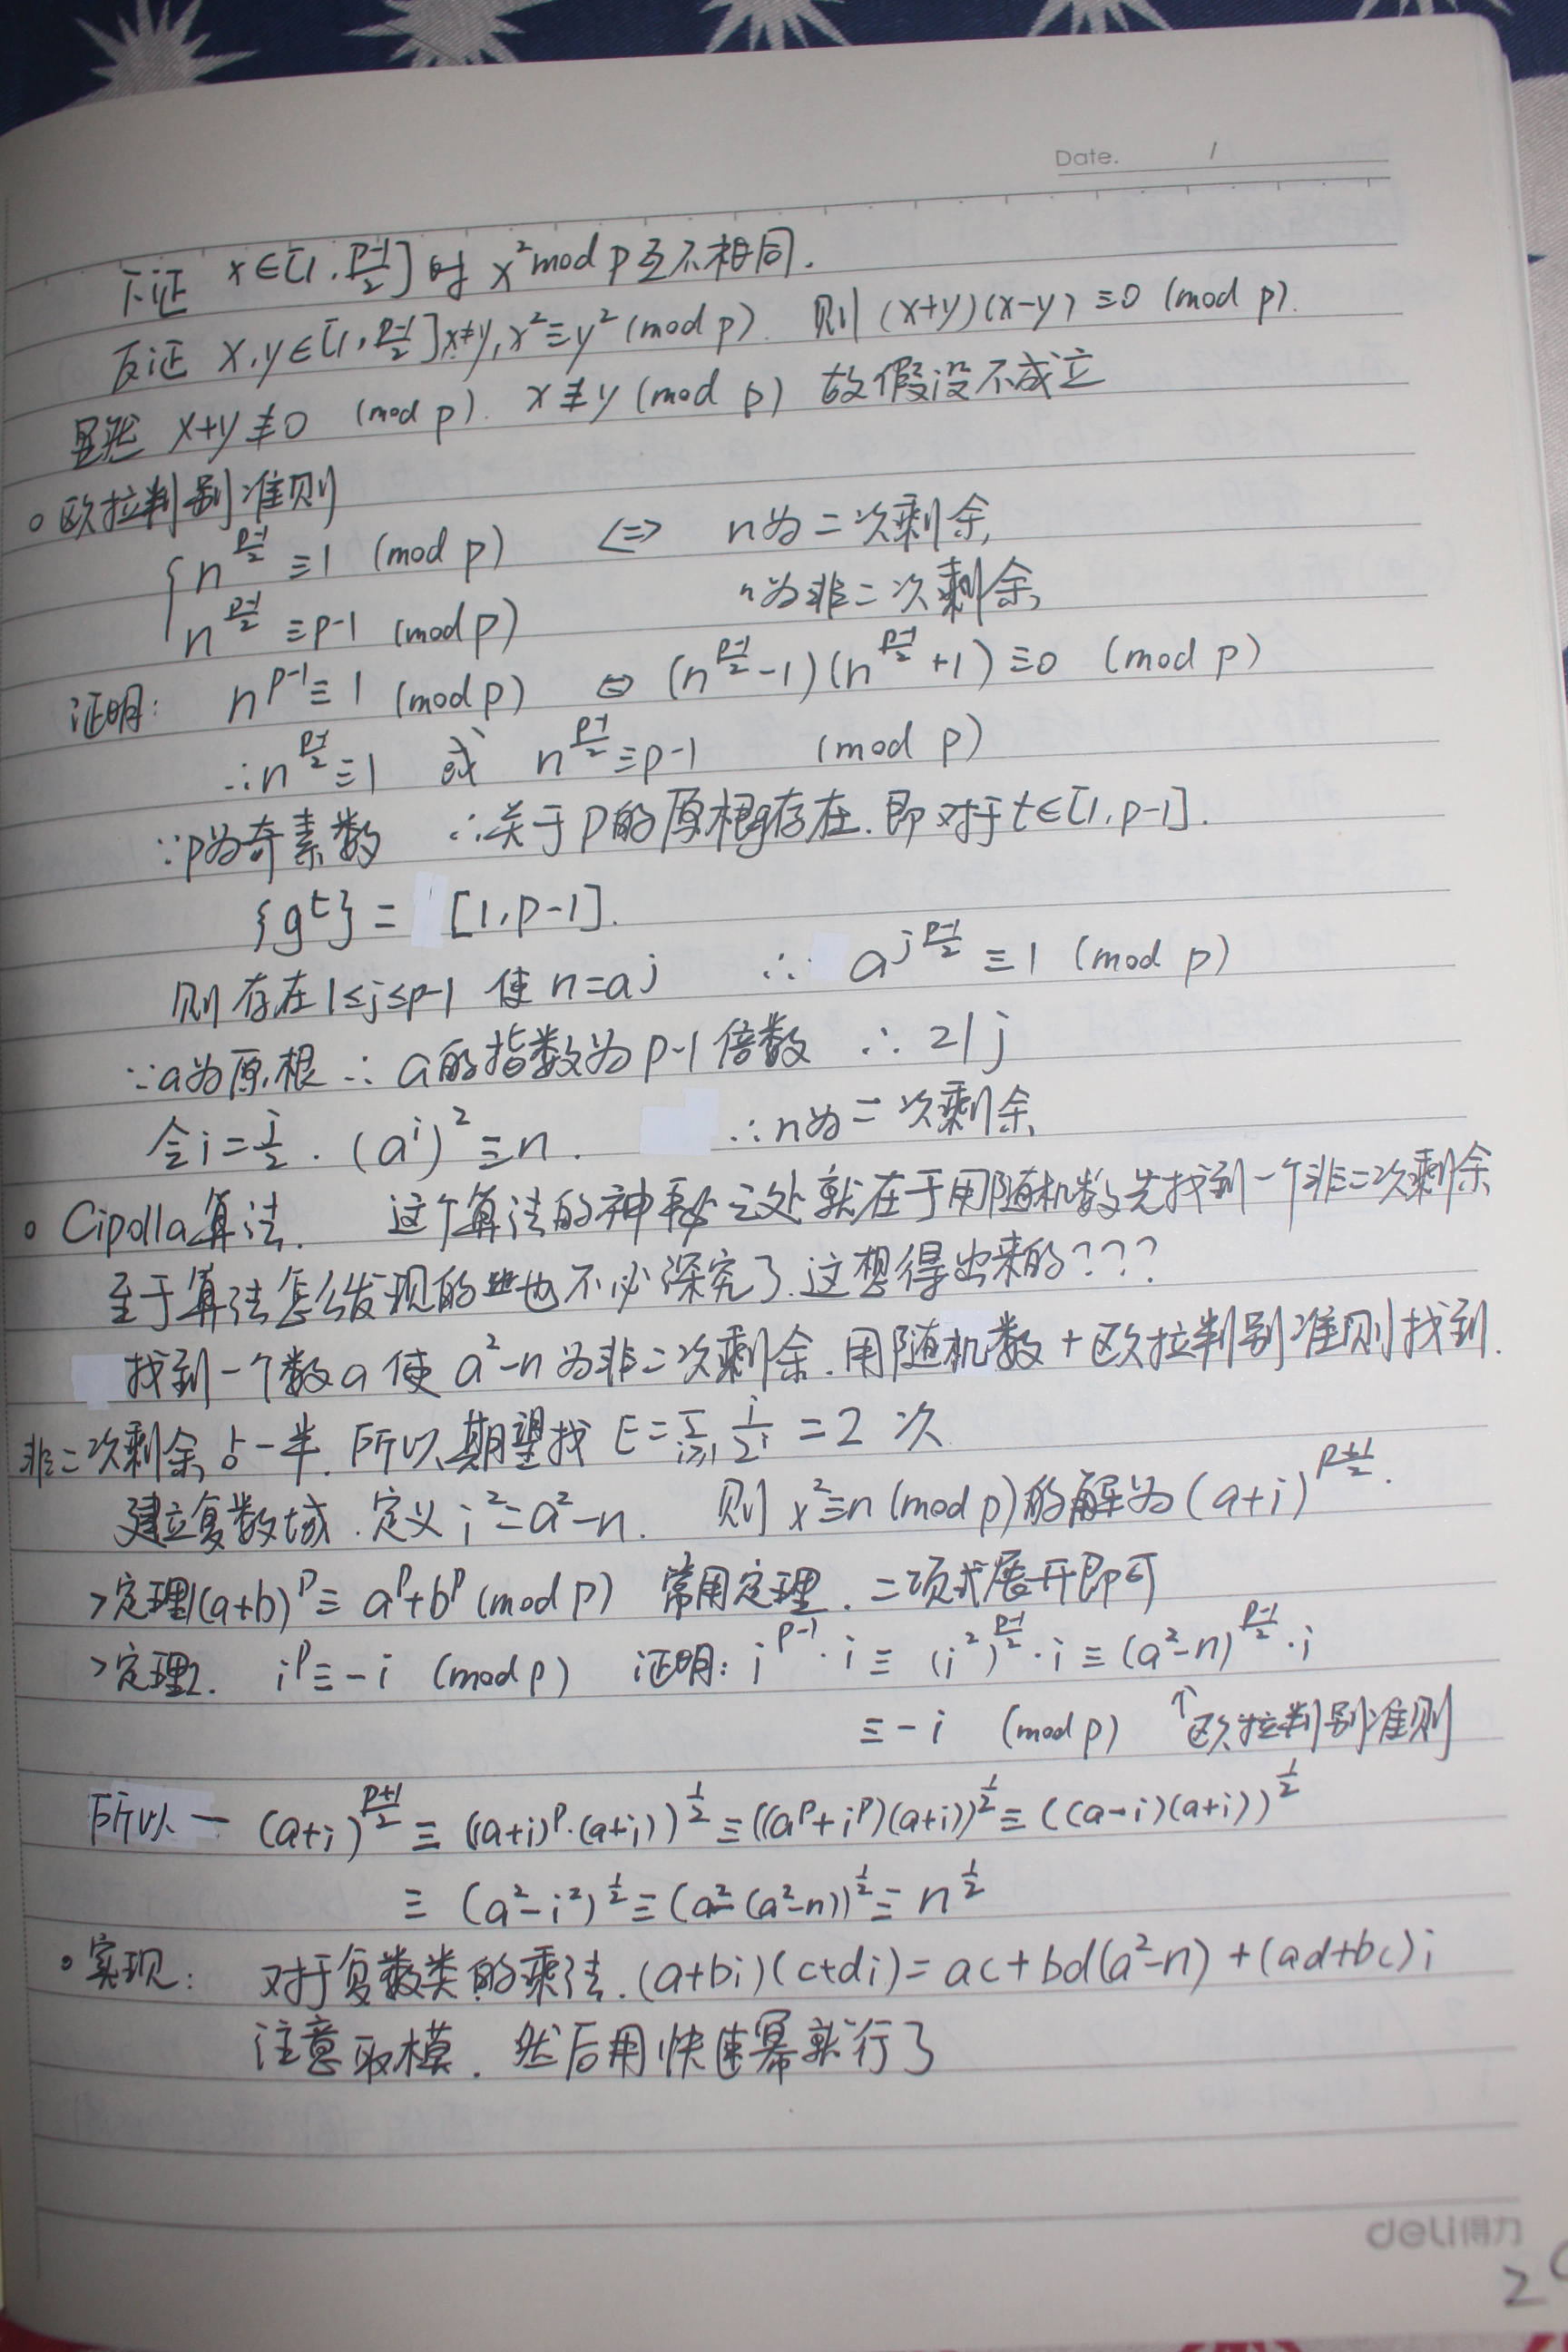 Date. /
下证 x∈[1, (p-1)/2] 时 x² mod p 互不相同.
反证 x,y∈[1, (p-1)/2] x≠y, x²≡y² (mod p). 则 (x+y)(x-y) ≡0 (mod p).
显然 x+y≢0 (mod p). x≢y (mod p) 故假设不成立
○欧拉判别准则
{ n^((p-1)/2) ≡1 (mod p) <=> n为二次剩余
n^((p-1)/2) ≡p-1 (mod p) n为非二次剩余
证明: n^(p-1)≡1 (mod p) ⇔ (n^((p-1)/2)-1)(n^((p-1)/2)+1)≡0 (mod p)
∴n^((p-1)/2)≡1 或 n^((p-1)/2)≡p-1 (mod p)
∵p为奇素数 ∴关于p的原根g存在. 即对于t∈[1,p-1].
{g^t} = [1,p-1].
则存在1≤j≤p-1 使 n=a^j ∴ a^(j(p-1)/2) ≡1 (mod p)
∵a为原根 ∴ a的指数为p-1倍数 ∴ 2|j
令i=j/2. (a^i)²≡n. ∴n为二次剩余
○ Cipolla算法. 这个算法的神秘之处就在于用随机数先找到一个非二次剩余
至于算法怎么发现的也不必深究了.这想得出来的???
找到一个数a使 a²-n为非二次剩余.用随机数+欧拉判别准则找到.
非二次剩余占一半.所以期望找 E=Σ_(i≥1) i/2^i =2 次
建立复数域.定义i²=a²-n. 则 x²≡n (mod p)的解为(a+i)^((p+1)/2).
>定理1(a+b)^p≡a^p+b^p (mod p) 常用定理.二项式展开即可
>定理2. i^p≡-i (mod p) 证明: i^(p-1)·i≡(i²)^((p-1)/2)·i≡(a²-n)^((p-1)/2)·i
≡-i (mod p) ↑欧拉判别准则
所以一 (a+i)^((p+1)/2)≡((a+i)^p·(a+i))^(1/2)≡((a^p+i^p)(a+i))^(1/2)≡((a-i)(a+i))^(1/2)
≡(a²-i²)^(1/2)≡(a²-(a²-n))^(1/2)≡n^(1/2)
○实现: 对于复数类的乘法.(a+bi)(c+di)=ac+bd(a²-n)+(ad+bc)i
注意取模. 然后用快速幂就行了
deli得力